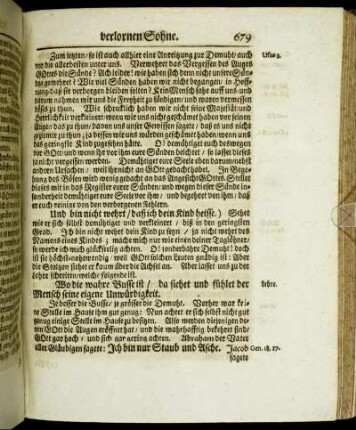 verlornen Sohne. 679
Zum letzten/ so ist auch allhier eine Anreitzung zur Demuht/ auch Usus 3.
vor die allerbesten unter uns. Vermehret das Vergessen des Auges
GOttes die Sünde? Ach leider! wie haben sich denn nicht unsere Sün-
den gemehret? Wie viel Sünden haben wir nicht begangen/ in Hoff-
nung/ daß sie verborgen bleiben solten? Kein Mensch sahe auff uns/ und
darum nahmen wir uns die Freyheit zu sündigen/ und waren vermessen
böses zu thun. Wie schrecklich haben wir nicht seine Majestät und
Herrlichkeit verkleinert/ wenn wir uns nicht geschämet haben vor seinen
Augen das zu thun/ davon uns unser Gewissen sagete/ daß es uns nicht
geziemete zu thun; ja dessen wir uns würden geschämet haben/ wenn uns
das geringste Kind zugesehen hätte. O! demühtiget euch deswegen
vor GOtt; und wenn ihr vor ihm eure Sünden beichtet/ so lasset dieses
ja nicht vergessen werden. Demühtiget eure Seele eben darum/ nebst
andern Ursachen/ weil ihr nicht an GOtt gedacht habet. In Bege-
hung des Bösen wird wenig gedacht an das Angesicht GOttes. Stellet
dieses mit in das Register eurer Sünden/ und wegen dieser Sünde in-
sonderheit demühtiget eure Seele vor ihm/ und begehret von ihm/ daß
er euch reinige von den verborgenen Fehlern.
Und bin nicht wehrt/ daß ich dein Kind heisse.) Sehet
wie er sich selbst demühtiget und verkleinert/ biß in den geringsten
Grad. Ich bin nicht wehrt dein Kind zu seyn/ ja nicht wehrt des
Namens eines Kindes; mache mich nur wie einen deiner Taglöhner/
so werde ich mich glückselig achten. O! sonderbahre Demuht! doch
ist sie höchst-nohtwendig/ weil GOtt solchen Leuten gnädig ist: Aber
die Stoltzen siehet er kaum über die Achsel an. Aber lasset uns zu der
Lehre schreiten/ welche folgende ist.
Wo die wahre Busse ist/ da siehet und fühlet der Lehre.
Mensch seine eigne Unwürdigkeit.
Je besser die Busse/ je grösser die Demuht. Vorher war keine
Stelle im Hause ihm gut genug: Nun achtet er sich selbst nicht gut
genug einige Stelle im Hause zu besitzen. Also werden diejenigen de-
nen GOtt die Augen eröffnet hat/ und die wahrhafftig bekehret sind/
GOtt gar hoch/ und sich gar gering achten. Abraham der Vater
aller Gläubigen sagete: Ich bin nur Staub und Asche. Jacob Gen. 18. 27.
sagete